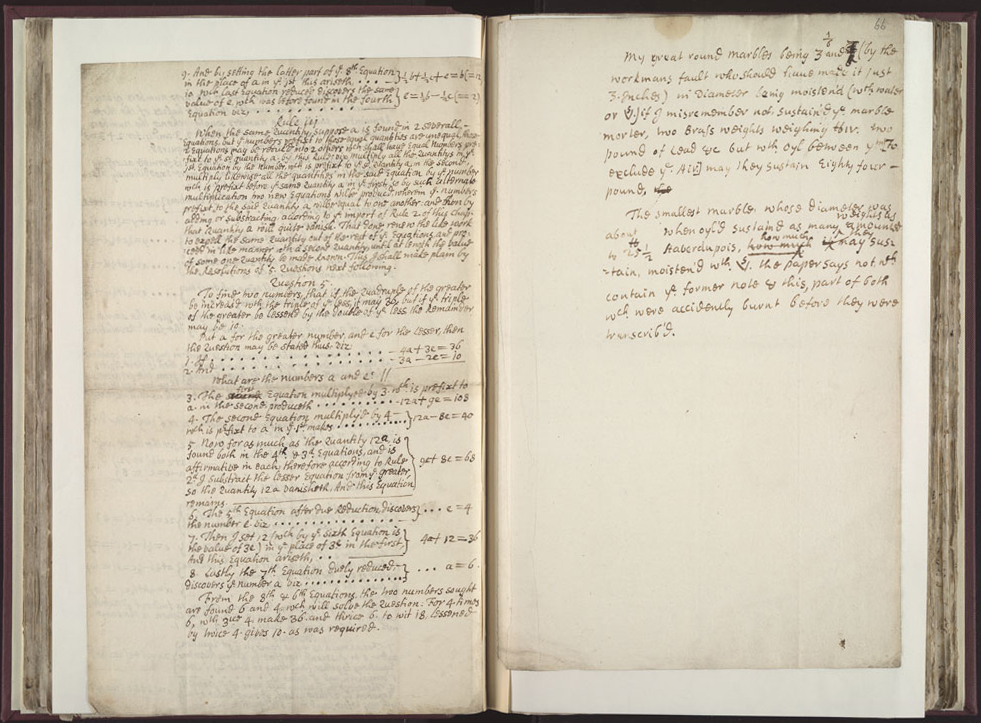 9. And by setting the latter part of yᵉ 8th Equation
in the place of a in yᵉ 1st this ariseth . . . } ½b+½c+e=b(=12
10. wch last Equation reduc'd discovers the same
value of e. wch was before found in the fourth } e=½b-½c(=2)
Equation viz . . . .
Rule iij
When the same Quantity, suppose a, is found in 2 severall
Equations, but yᵉ numbers prefixt to those equal quantities are unequal, those
2 Equations may be reduc'd into 2 others wch shall have equal numbers pre-
fixt to yᵉ sd quantity a. by this Rule viz. multiply all the Quantities in yᵉ
1st Equation by the number wch is prefixt to yᵉ sd Quantity a, in the second
multiply likewise all the quantities in the said Equation by yᵉ number
wch is prefixt before yᵉ same Quantity a in yᵉ first, so by such alternate
multiplication two new Equations will be produc't wherein yᵉ numbers
prefixt to the said Quantity a will be equal to one another, and then by
adding or substracting according to yᵉ import of Rule 2. of this chapt
that Quantity a will quite vanish. That done renew the like work
to expell the same Quantity out of the rest of yᵉ Equations, and pro-
ceed in like manner wth a second Quantity until at length the value
of some one Quantity be made known. This I shall make plain by
the Resolutions of 5. Questions next following.
Question 5
To find two numbers, that if the Quadruple of the greater
be increas'd with the triple of yᵉ less, it may 36, but if yᵉ triple
of the greater be lessen'd by the double of yᵉ less the Remainder
may be 10.
Put a for the greater number, and e for the lesser, then
the Question may be stated thus. viz.
1. If . . . . . . . . . . 4a+3e=36
2. And . . . . . . . . . . 3a-2e=10
what are the numbers a and e? //
3. The first Equation multiply'd by 3. wch is prefixt to
a. in the second produceth . . . . . . 12a+9e=108
4. The second Equation multiply'd by 4
wch is p'fixt to a in yᵉ 1st makes . . . . } 12a-8e=40
5. Now for as much as the Quantity 12a, is
found both in the 4th & 3d Equations, and is
affirmative in each, therefore according to Rule } 9e+8e=68
2d I substract the lesser Equation from yᵉ greater,
so the Quantity 12a vanisheth. And this Equation
remains.
6. The 5th Equation after due Reduction, discovers } . . . e=4
the number e. viz . . . . . . .
7. Then I set 12 (wch by yᵉ sixth Equation is
the value of 3e) in yᵉ place of 3e in the first, } 4a+12=36
And this Equation ariseth, . . .
8. Lastly the 7th Equation duely reduced, } . . . a=6.
discovers yᵉ number a viz . . . . . .
From the 8th & 6th Equations, the two numbers sought
are found 6 and 4, wch will solve the Question: For 4 times
6, wth 3ce 4. make 36. and thrice 6. to wit 18. lessened
by twice 4. gives 10. as was required.
66
My great round marbles being 3 1/6 and (by the
workmans fault who should have made it just
3 Inches) in Diameter being moistend (wth water
or if I misremember not, sustain'd yᵉ marble
morter, two brass weights weighing two
pound of lead &c but wth oyl between ym (to
exclude yᵉ Air) may they sustain Eighty four
pound,
The smallest marble, whose diameter was
about when oyl'd sustain'd as many weights as amounted
to lb 25 1/2 Haberdupois, how much they may sus-
-tain, moistend wth the paper says not, wch
contain yᵉ former note & this, part of both
wch were accidently burnt before they were
transcrib'd.